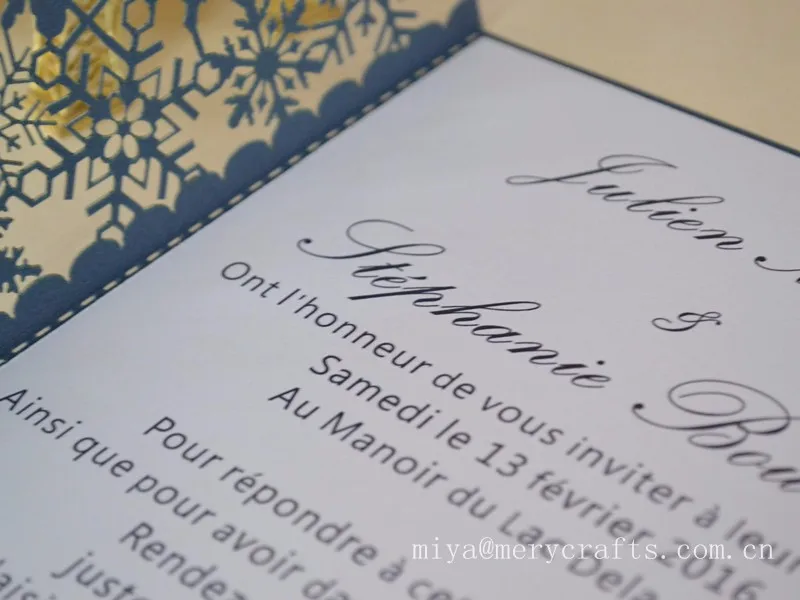 Julien
&
Stéphanie
Ont l'honneur de vous inviter à leur
Samedi le 13 février 2016
Au Manoir du Lac Dela
Pour répondre à
Ainsi que pour avoir
Rendez
juste
miya@merycrafts.com.cn